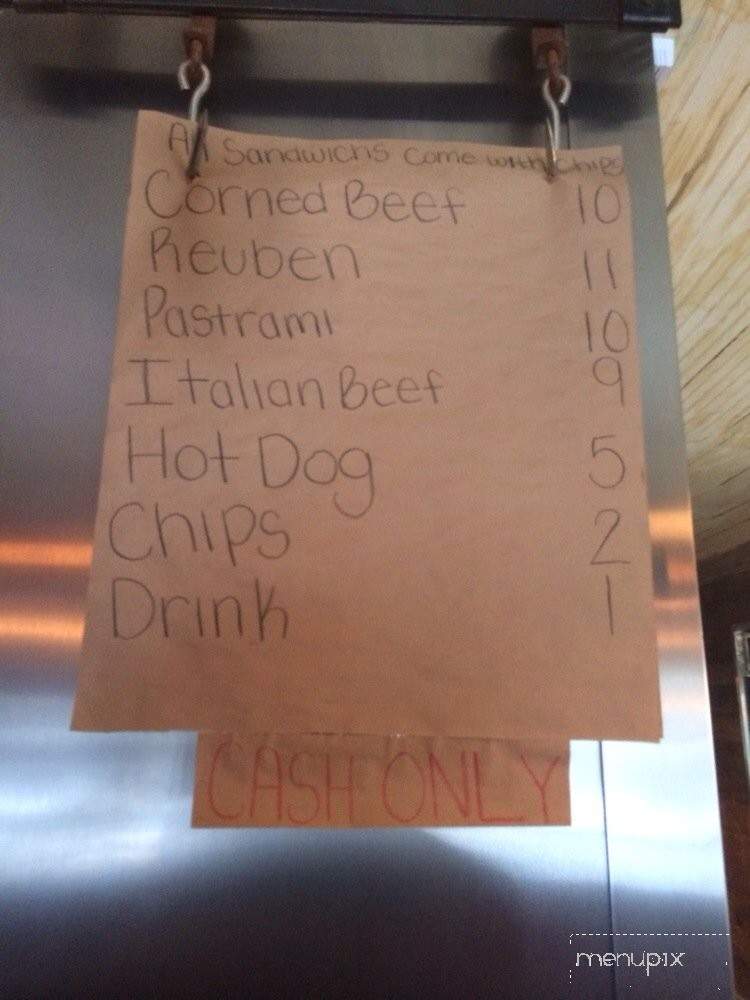 All Sandwichs Come with Chips
Corned Beef 10
Reuben 11
Pastrami 10
Italian Beef 9
Hot Dog 5
Chips 2
Drink 1
CASH ONLY
menupix